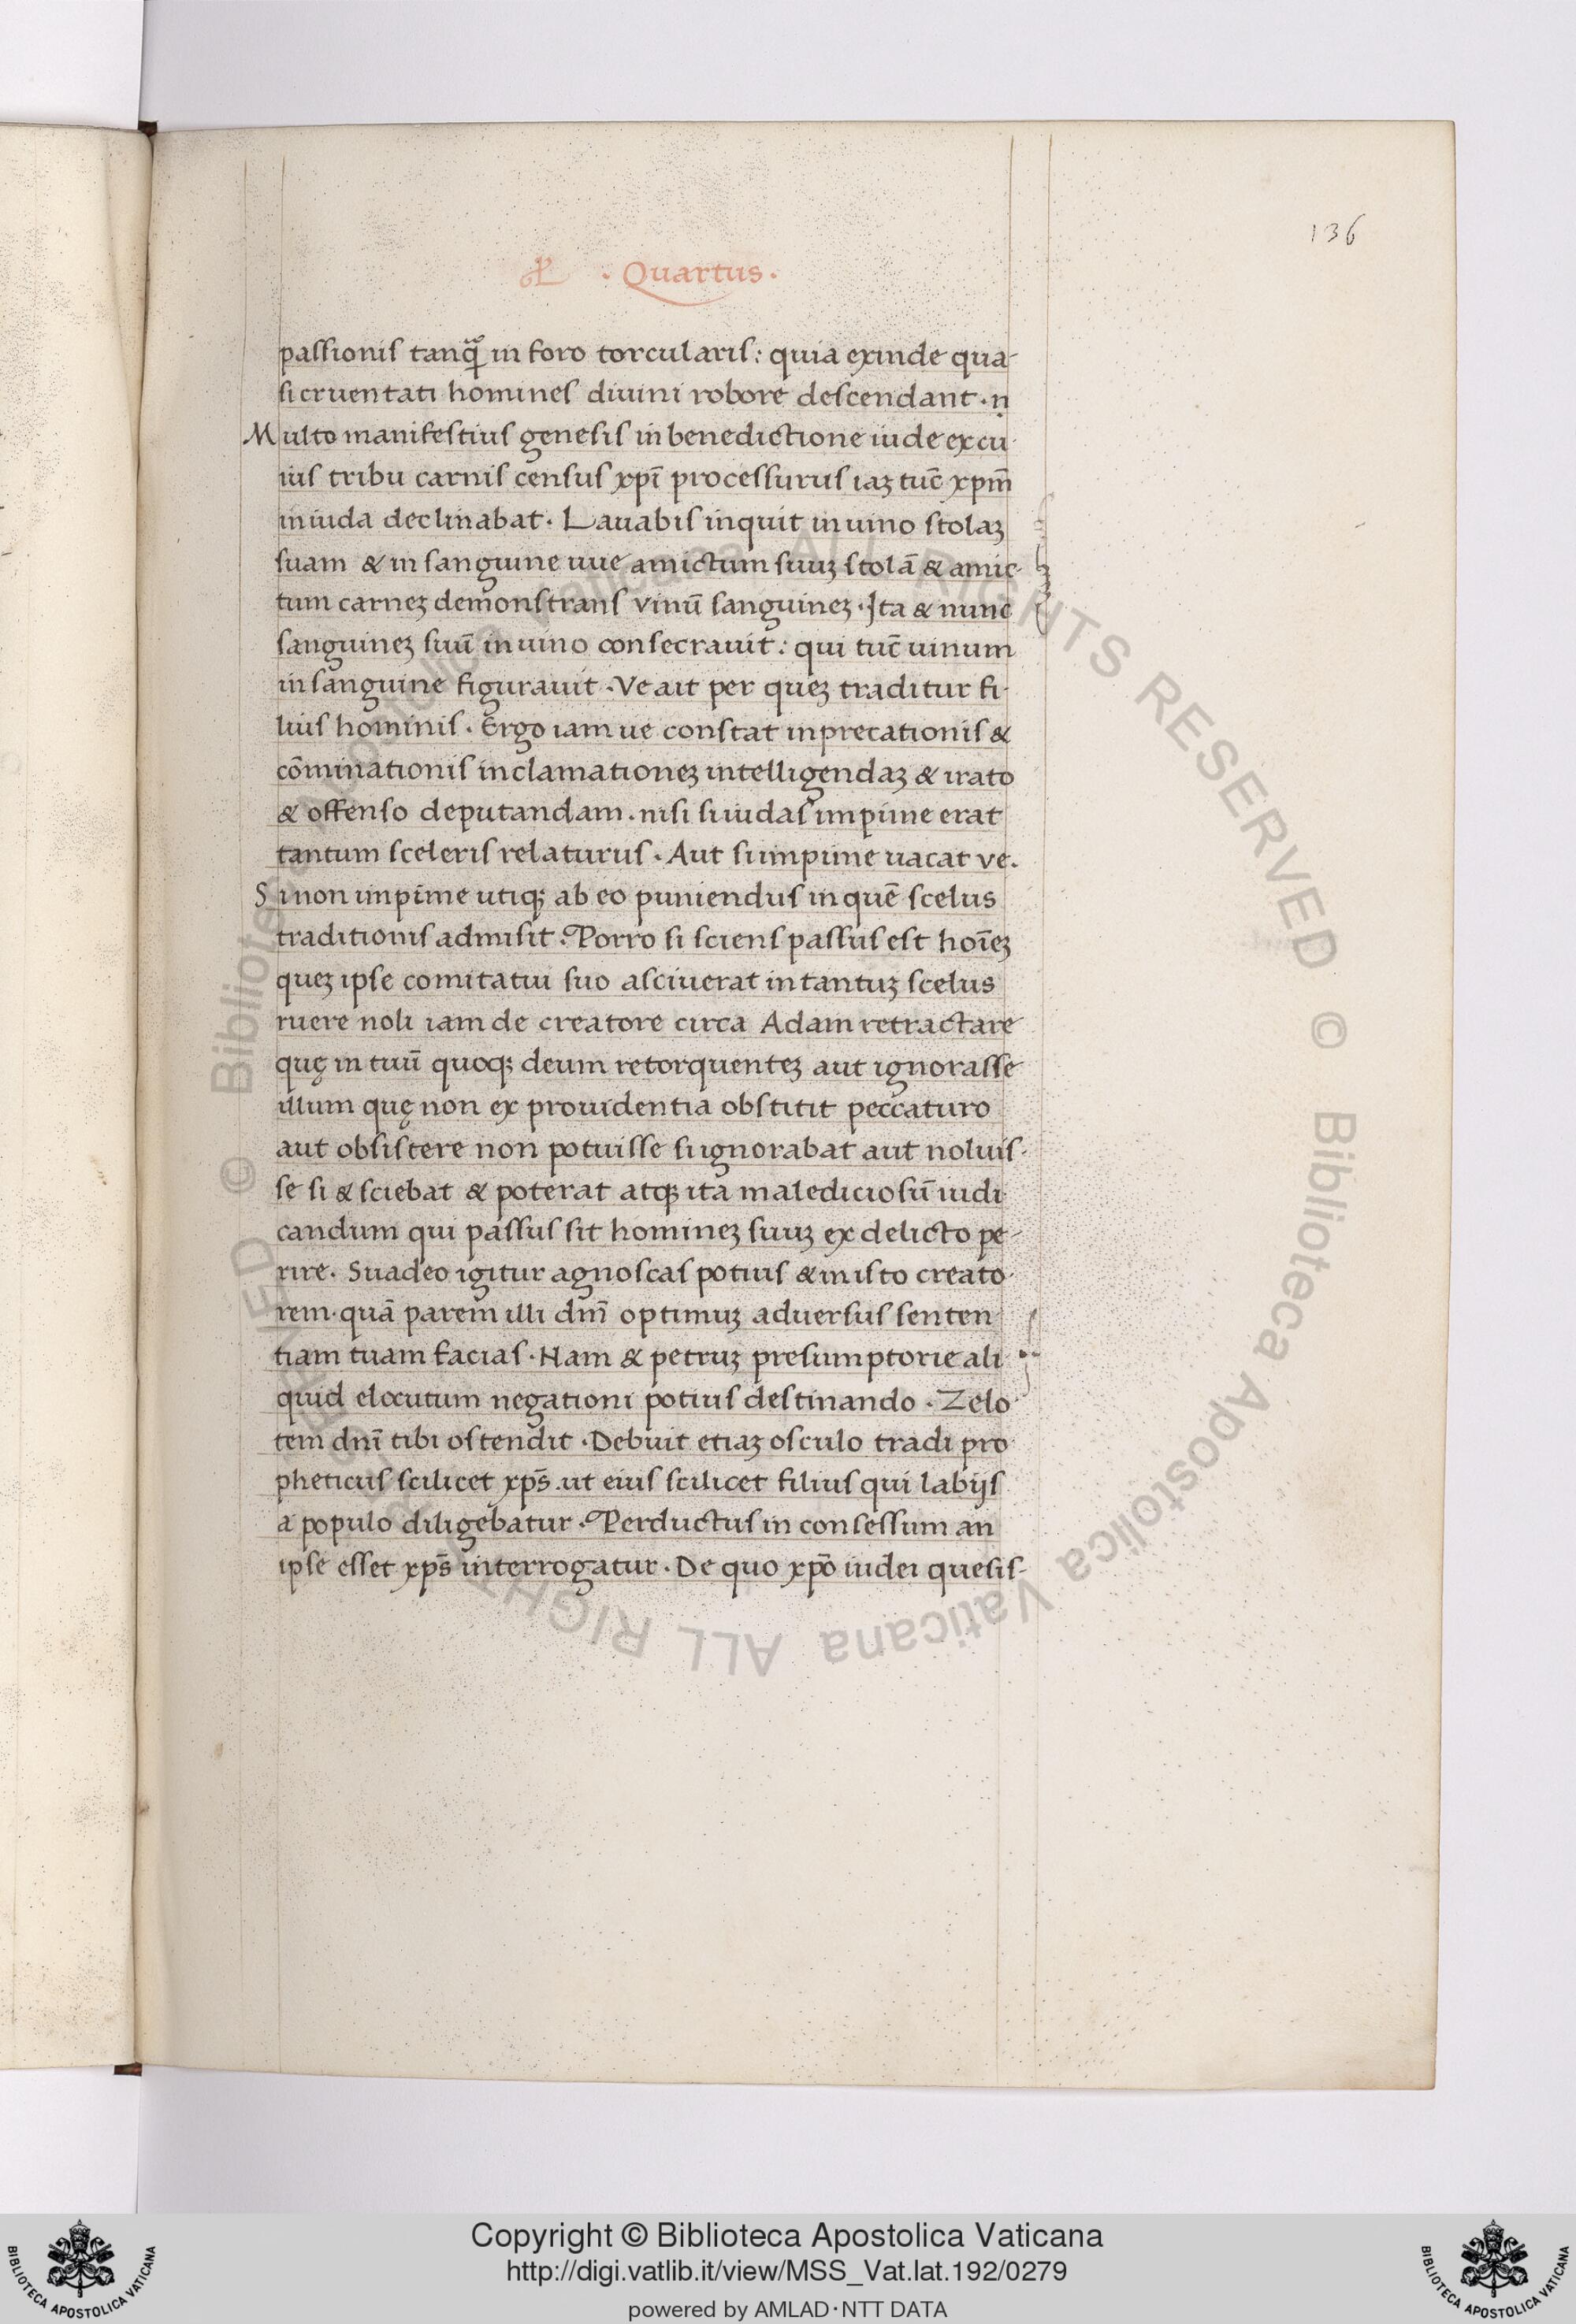 136
· Quartus ·
passionis tanq̃ in foro torcularis: quia exinde qua-
si cruentati homines diuini robore descendant · n
Multo manifestius genesis in benedictione iude ex cu
ius tribu carnis census xpi̅ processurus iaꝫ tuc̅ xpm̅
in iuda declinabat · Lauabis inquit in uino stolaꝫ
suam & in sanguine uue amictum suuꝫ stolā & amic-
tum carneꝫ demonstrans vinū sanguineꝫ · Ita & nunc
sanguineꝫ suū in uino consecrauit: qui tuc̅ uinum
in sanguine figurauit · Ve ait per queꝫ traditur fi-
lius hominis · Ergo iam ue constat inprecationis &
cōminationis inclamationeꝫ intelligendaꝫ & irato
& offenso deputandam · nisi si iudas impune erat
tantum sceleris relaturus · Aut si impune uacat ve.
Si non impūne utiqꝫ ab eo puniendus in quē scelus
traditionis admisit · Porro si sciens passus est hoīeꝫ
queꝫ ipse comitatui suo asciuerat in tantuꝫ scelus
ruere noli iam de creatore circa Adam retractare
quę in tuū quoqꝫ deum retorquenteꝫ aut ignorasse
illum quę non ex prouidentia obstitit peccaturo
aut obsistere non potuisse si ignorabat aut noluis-
se si & sciebat & poterat atqꝫ ita malediciosū iudi
candum qui passus sit homineꝫ suuꝫ ex delicto pe-
rire. Suadeo igitur agnoscas potius & in isto creato-
rem · quā parem illi dnī optimuꝫ aduersus senten
tiam tuam facias · Nam & petruꝫ presumptorie ali
quid elocutum negationi potius destinando · Zelo
tem dnī tibi ostendit · Debuit etiaꝫ osculo tradi pro
pheticus scilicet xps̅ . ut eius scilicet filius qui labijs
a populo diligebatur · Perductus in consessum an
ipse esset xps̅ interrogatur · De quo xpo̅ iudei quesis-
© Biblioteca Apostolica Vaticana ALL RIGHTS RESERVED © Biblioteca Apostolica Vaticana ALL RIGHTS RESERVED
Copyright © Biblioteca Apostolica Vaticana
http://digi.vatlib.it/view/MSS_Vat.lat.192/0279
powered by AMLAD·NTT DATA
BIBLIOTECA APOSTOLICA VATICANA
BIBLIOTECA APOSTOLICA VATICANA